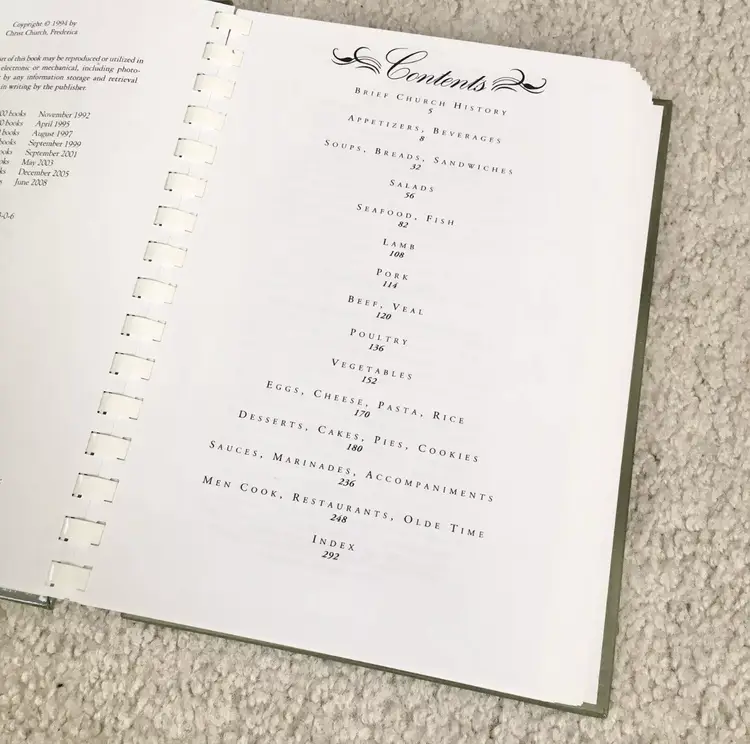 Copyright © 1994 by
Christ Church, Frederica
of this book may be reproduced or utilized in
electronic or mechanical, including photo-
by any information storage and retrieval
in writing by the publisher.
books November 1992
books April 1995
books August 1997
books September 1999
September 2001
May 2003
December 2005
June 2008
-0-6
Contents
Brief Church History
5
Appetizers, Beverages
8
Soups, Breads, Sandwiches
32
Salads
56
Seafood, Fish
82
Lamb
108
Pork
114
Beef, Veal
120
Poultry
136
Vegetables
152
Eggs, Cheese, Pasta, Rice
170
Desserts, Cakes, Pies, Cookies
180
Sauces, Marinades, Accompaniments
236
Men Cook, Restaurants, Olde Time
248
Index
292